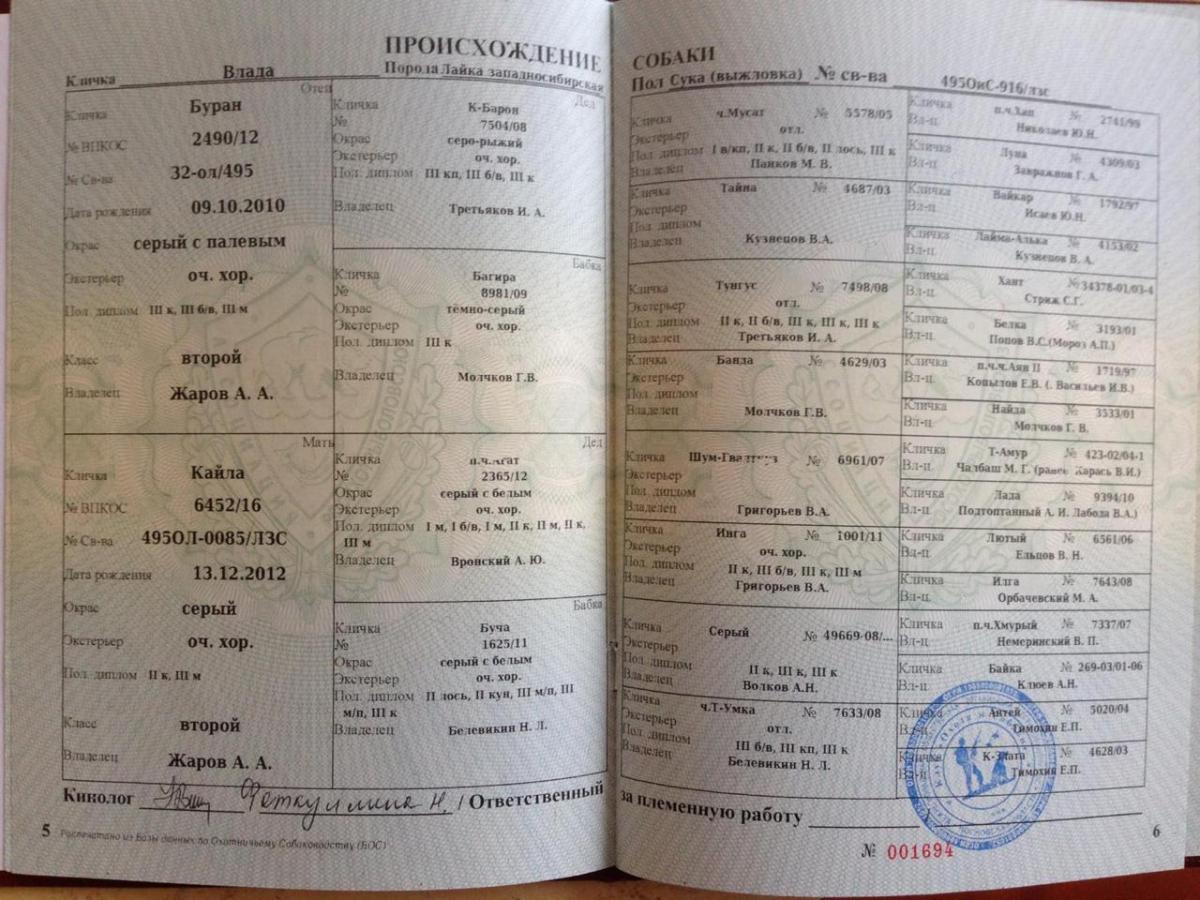 ПРОИСХОЖДЕНИЕ
Кличка Влада Порода Лайка западносибирская
Отец
Кличка Буран
№ ВПКОС 2490/12
№ Св-ва 32-ол/495
Дата рождения 09.10.2010
Окрас серый с палевым
Экстерьер оч. хор.
Пол. диплом III к, III б/в, III м
Класс второй
Владелец Жаров А. А.
Дед
Кличка К-Барон
№ 7504/08
Окрас серо-рыжий
Экстерьер оч. хор.
Пол. диплом III кп, III б/в, III к
Владелец Третьяков И. А.
Бабка
Кличка Багира
№ 8981/09
Окрас тёмно-серый
Экстерьер оч. хор.
Пол. диплом III к
Владелец Молчков Г.В.
Мать
Кличка Кайла
№ ВПКОС 6452/16
№ Св-ва 495ОЛ-0085/ЛЗС
Дата рождения 13.12.2012
Окрас серый
Экстерьер оч. хор.
Пол. диплом II к, III м
Класс второй
Владелец Жаров А. А.
Дед
Кличка п.ч.Агат
№ 2365/12
Окрас серый с белым
Экстерьер оч. хор.
Пол. диплом I м, I б/в, I м, II к, II м, II к,
III м
Владелец Вронский А. Ю.
Бабка
Кличка Буча
№ 1625/11
Окрас серый с белым
Экстерьер оч. хор.
Пол. диплом II лось, II кун, III м/п, III
м/п, III к
Владелец Белевикин Н. Л.
Кинолог Феткуллина Н. / Ответственный
5 Распечатано из Базы данных по Охотничьему Собаководству (БОС)
СОБАКИ
Пол Сука (выжловка) № св-ва 495ОиС-916/лзс
Кличка ч.Мусат № 5578/05
Экстерьер отл.
Пол. диплом I в/кп, II к, II б/в, II лось, III к
Владелец Панков М. В.
Кличка Тайна № 4687/03
Экстерьер
Пол. диплом
Владелец Кузнецов В.А.
Кличка Тунгус № 7498/08
Экстерьер отл.
Пол. диплом II к, II б/в, III к, III к, III к
Владелец Третьяков И. А.
Кличка Банда № 4629/03
Экстерьер
Пол. диплом
Владелец Молчков Г.В.
Кличка № 6961/07
Экстерьер
Пол. диплом
Владелец Григорьев В.А.
Кличка Инга № 1001/11
Экстерьер оч. хор.
Пол. диплом II к, III б/в, III к, III м
Владелец Григорьев В.А.
Кличка Серый № 49669-08/...
Экстерьер
Пол. диплом II к, III к, III к
Владелец Волков А.Н.
Кличка ч.Т-Умка № 7633/08
Экстерьер отл.
Пол. диплом III б/в, III кп, III к
Владелец Белевикин Н. Л.
Кличка п.ч.Хап № 2741/99
Вл-ц. Николаев Ю.Н.
Кличка Луна № 4309/03
Вл-ц. Завражнов Г. А.
Кличка Вайкар № 1792/97
Вл-ц. Исаев Ю.Н.
Кличка Лайма-Алька № 4153/02
Вл-ц. Кузнецов В. А.
Кличка Хант № 34378-01/03-4
Вл-ц. Стриж С.Г.
Кличка Белка № 3193/01
Вл-ц. Попов В.С.(Мороз А.П.)
Кличка п.ч.ч.Аян II № 1719/97
Вл-ц. Копылов Е.В. (. Васильев И.В.)
Кличка Найда № 3533/01
Вл-ц. Молчков Г. В.
Кличка Т-Амур № 423-02/04-1
Вл-ц. Чалбаш М. Г. (ранее Карась В.И.)
Кличка Лада № 9394/10
Вл-ц. Подтоптанный А. И. Лабода В.А.)
Кличка Лютый № 6561/06
Вл-ц. Ельцов В. Н.
Кличка Илга № 7643/08
Вл-ц. Орбачевский М. А.
Кличка п.ч.Хмурый № 7337/07
Вл-ц. Немеринский В. П.
Кличка Байка № 269-03/01-06
Вл-ц. Клюев А.Н.
Кличка Антей № 5020/04
Вл-ц. Тимохин Е.П.
Кличка К-Злата № 4628/03
Вл-ц. Тимохин Е.П.
за племенную работу
№ 001694
6